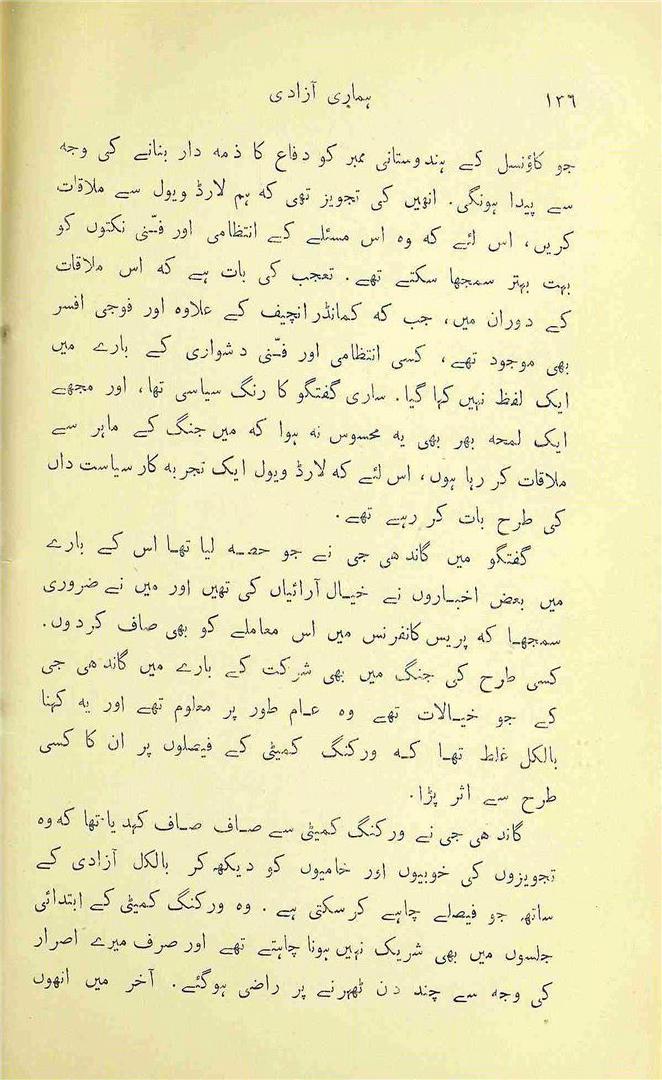 ۱۳۶
ہماری آزادی
جو کاؤنسل کے ہندوستانی ممبر کو دفاع کا ذمہ دار بنانے کی وجہ
سے پیدا ہونگی۔ انھیں کی تجویز تھی کہ ہم لارڈ ویول سے ملاقات
کریں، اس لئے کہ وہ اس مسئلے کے انتظامی اور فنّی نکتوں کو
بہت بہتر سمجھا سکتے تھے۔ تعجب کی بات ہے کہ اس ملاقات
کے دوران میں، جب کہ کمانڈر انچیف کے علاوہ اور فوجی افسر
بھی موجود تھے، کسی انتظامی اور فنّی دشواری کے بارے میں
ایک لفظ نہیں کہا گیا۔ ساری گفتگو کا رنگ سیاسی تھا، اور مجھے
ایک لمحہ بھر بھی یہ محسوس نہ ہوا کہ میں جنگ کے ماہر سے
ملاقات کر رہا ہوں، اس لئے کہ لارڈ ویول ایک تجربہ کار سیاست داں
کی طرح بات کر رہے تھے۔
گفتگو میں گاندھی جی نے جو حصہ لیا تھا اس کے بارے
میں بعض اخباروں نے خیال آرائیاں کی تھیں اور میں نے ضروری
سمجھا کہ پریس کانفرنس میں اس معاملے کو بھی صاف کردوں۔
کسی طرح کی جنگ میں بھی شرکت کے بارے میں گاندھی جی
کے جو خیالات تھے وہ عام طور پر معلوم تھے اور یہ کہنا
بالکل غلط تھا کہ ورکنگ کمیٹی کے فیصلوں پر ان کا کسی
طرح سے اثر پڑا۔
گاندھی جی نے ورکنگ کمیٹی سے صاف صاف کہدیا تھا کہ وہ
تجویزوں کی خوبیوں اور خامیوں کو دیکھ کر بالکل آزادی کے
ساتھ جو فیصلے چاہے کرسکتی ہے۔ وہ ورکنگ کمیٹی کے ابتدائی
جلسوں میں بھی شریک نہیں ہونا چاہتے تھے اور صرف میرے اصرار
کی وجہ سے چند دن ٹھہرنے پر راضی ہوگئے۔ آخر میں انھوں